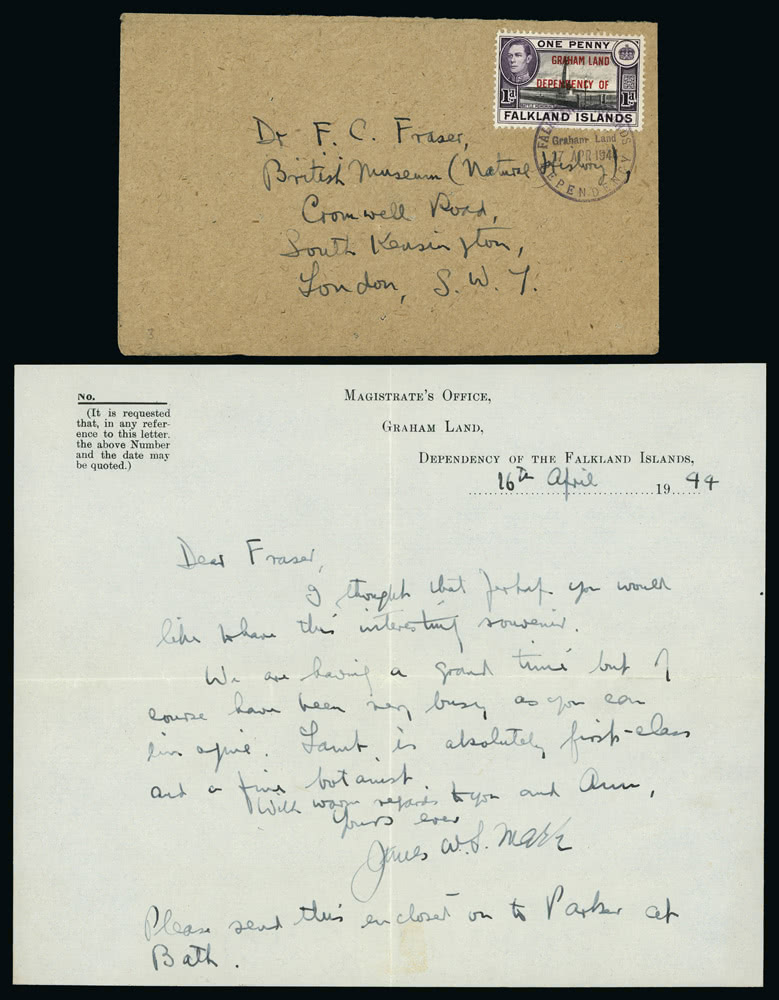 ONE PENNY
GRAHAM LAND
DEPENDENCY OF
1d 1d
FALKLAND ISLANDS
Graham Land
17 APR 194
DEPENDEN
Dr F. C. Fraser,
British Museum (Natural History),
Cromwell Road,
South Kensington,
London, S. W. 7.
3
No.
(It is requested
that, in any refer-
ence to this letter.
the above Number
and the date may
be quoted.)
MAGISTRATE'S OFFICE,
GRAHAM LAND,
DEPENDENCY OF THE FALKLAND ISLANDS,
16th April 1944
Dear Fraser,
I thought that perhaps you would
like to have this interesting souvenir.
We are having a grand time but of
course have been very busy as you can
imagine. Lamb is absolutely first-class
and a fine botanist.
With warm regards to you and Ann,
Yours ever
James W. S. Marr
Please send this enclosed on to Parker at
Bath.